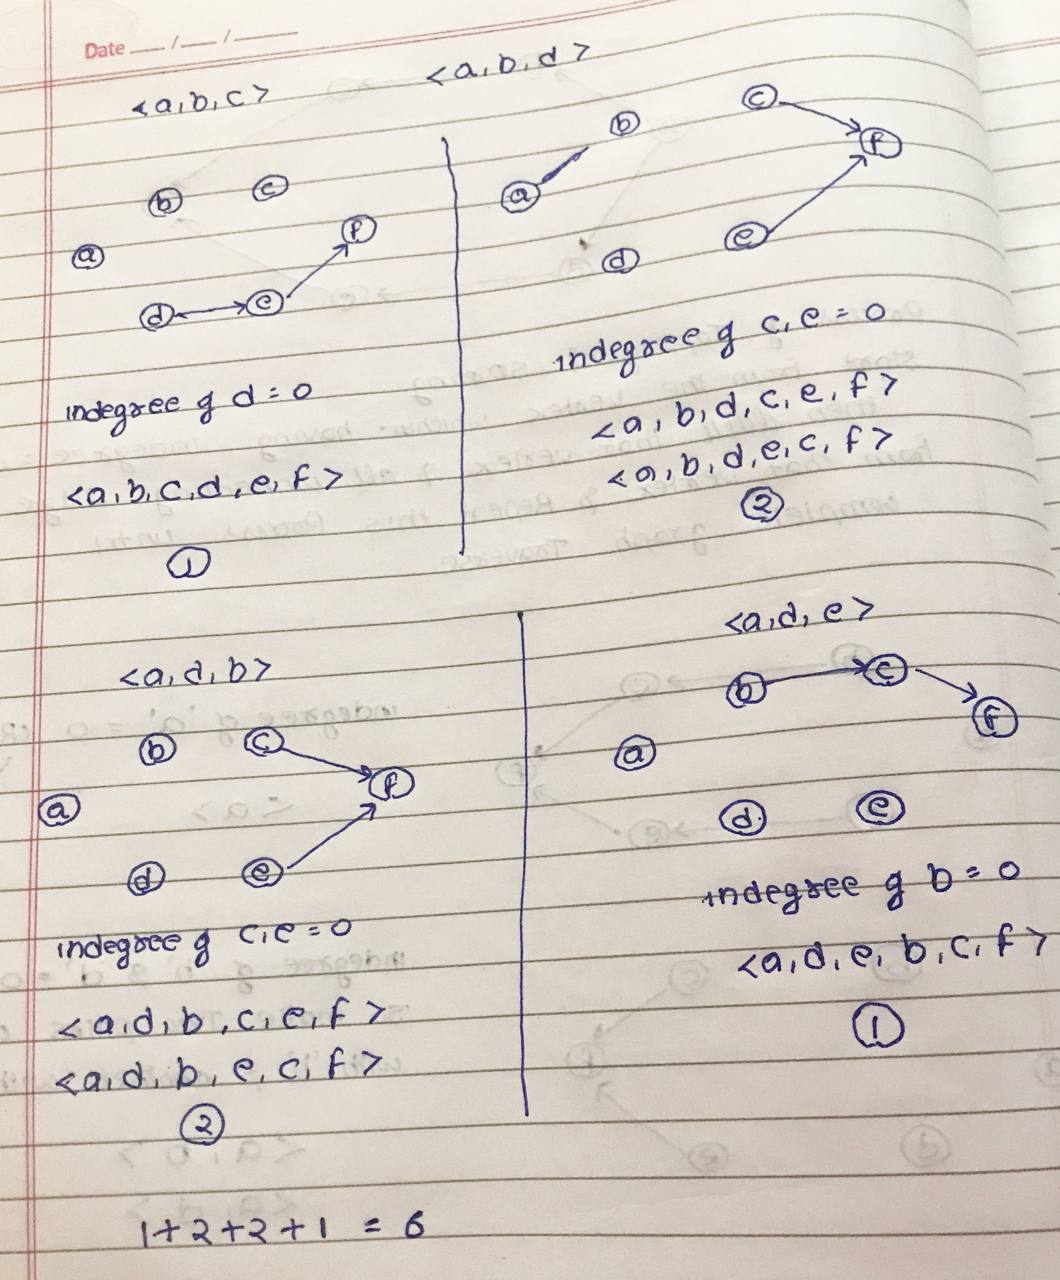 Date __/__/____
<a,b,c>
b c
f
a
d e
indegree of d = 0
<a,b,c,d,e,f>
1
<a,b,d>
c
b
f
a
e
d
indegree of c,e = 0
<a,b,d,c,e,f>
<a,b,d,e,c,f>
2
<a,d,b>
b c
f
a
d e
indegree of c,e = 0
<a,d,b,c,e,f>
<a,d,b,e,c,f>
2
<a,d,e>
b c
f
a
d e
indegree of b = 0
<a,d,e,b,c,f>
1
1+2+2+1 = 6